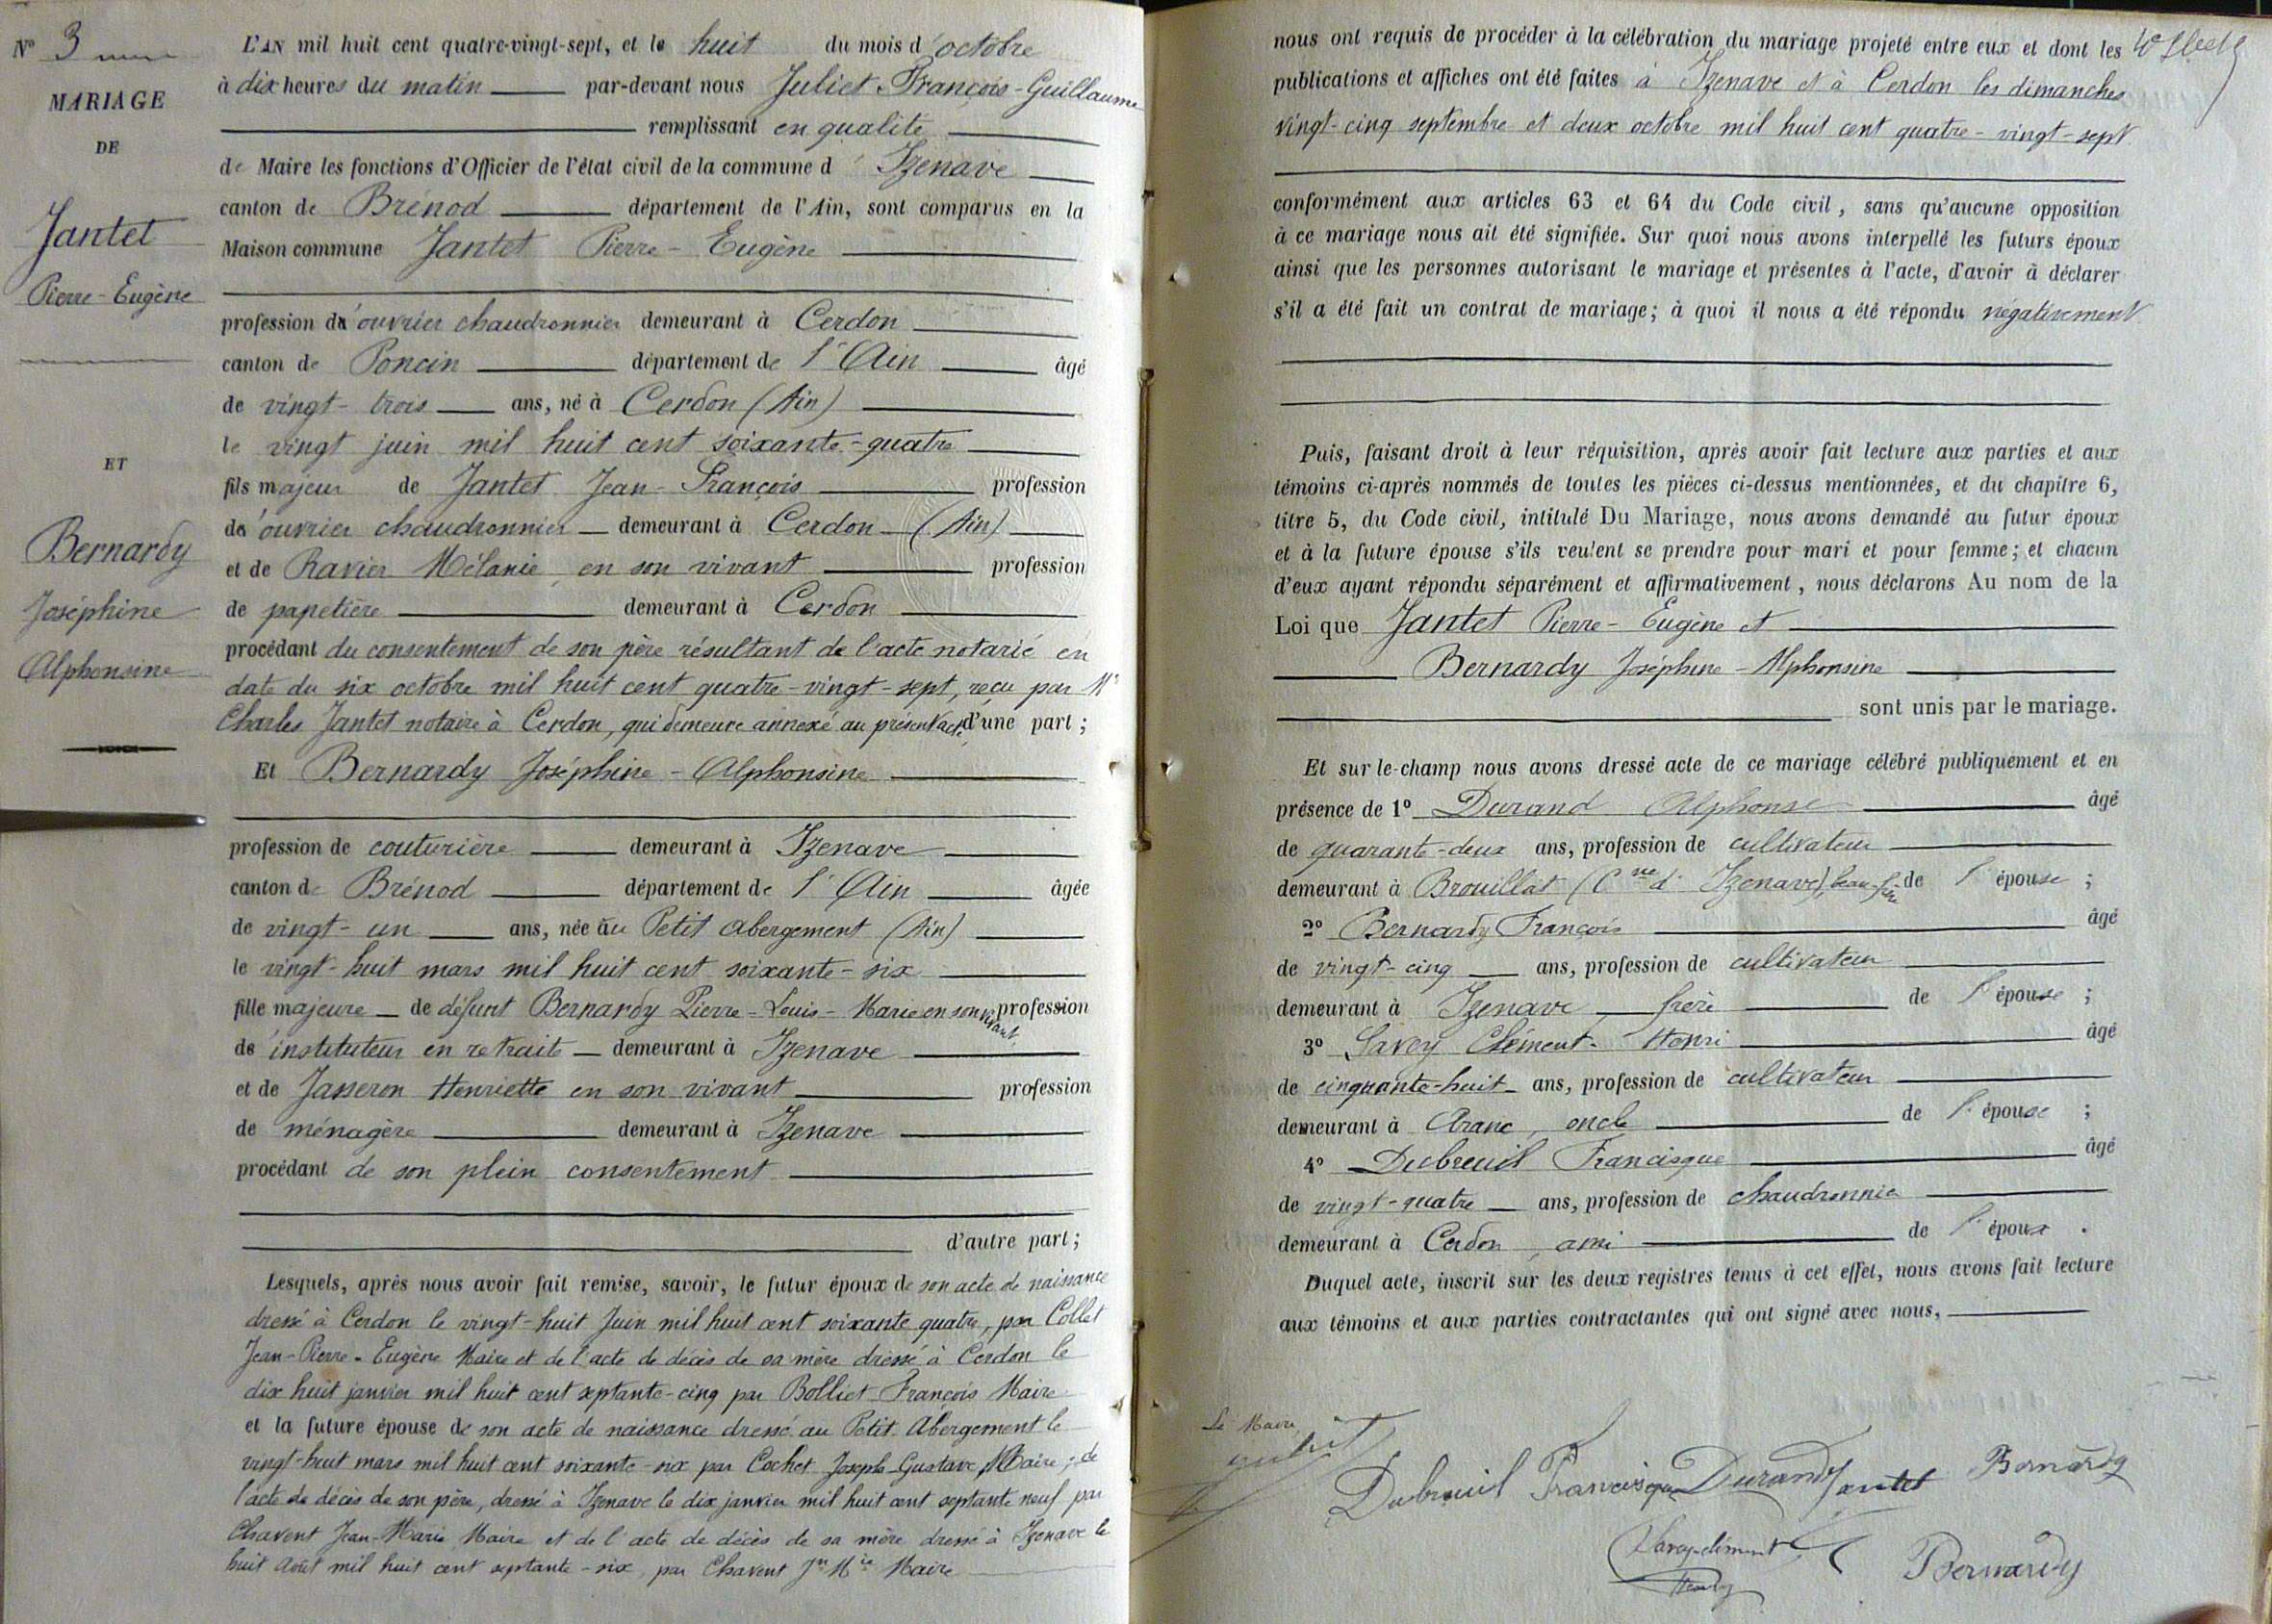 N° 3
MARIAGE
DE
Jantet
Pierre-Eugène
ET
Bernardy
Joséphine
Alphonsine
L'AN mil huit cent quatre-vingt-sept, et le huit du mois d'octobre
à dix heures du matin par-devant nous Juliet François-Guillaume
remplissant en qualité
de Maire les fonctions d'Officier de l'état civil de la commune d'Izenave
canton de Brénod département de l'Ain, sont comparus en la
Maison commune Jantet Pierre-Eugène
profession d'ouvrier chaudronnier demeurant à Cerdon
canton de Poncin département de l'Ain âgé
de vingt-trois ans, né à Cerdon (Ain)
le vingt juin mil huit cent soixante-quatre
fils majeur de Jantet Jean-François profession
d'ouvrier chaudronnier demeurant à Cerdon (Ain)
et de Ravier Mélanie, en son vivant profession
de papetière demeurant à Cerdon
procédant du consentement de son père résultant de l'acte notarié en
date du six octobre mil huit cent quatre-vingt-sept, reçu par Me
Charles Jantet notaire à Cerdon, qui demeure annexé au présent acte, d'une part ;
Et Bernardy Joséphine-Alphonsine
profession de couturière demeurant à Izenave
canton de Brénod département de l'Ain âgée
de vingt-un ans, née au Petit Abergement (Ain)
le vingt-huit mars mil huit cent soixante-six
fille majeure de défunt Bernardy Pierre-Louis-Marie en son vivant profession
d'instituteur en retraite demeurant à Izenave
et de Jasseron Henriette en son vivant profession
de ménagère demeurant à Izenave
procédant de son plein consentement
d'autre part ;
Lesquels, après nous avoir fait remise, savoir, le futur époux de son acte de naissance
dressé à Cerdon le vingt-huit Juin mil huit cent soixante quatre, par Collet
Jean-Pierre-Eugène Maire et de l'acte de décès de sa mère dressé à Cerdon le
dix huit janvier mil huit cent septante-cinq par Bolliet François Maire
et la future épouse de son acte de naissance dressé au Petit Abergement le
vingt-huit mars mil huit cent soixante-six par Cochet Joseph-Gustave, Maire ; de
l'acte de décès de son père, dressé à Izenave le dix janvier mil huit cent septante neuf par
Chavent Jean-Marie Maire et de l'acte de décès de sa mère dressé à Izenave le
huit Août mil huit cent septante-six, par Chavent Jn Mie Maire
nous ont requis de procéder à la célébration du mariage projeté entre eux et dont les
publications et affiches ont été faites à Izenave et à Cerdon les dimanches
vingt-cinq septembre et deux octobre mil huit cent quatre-vingt-sept
conformément aux articles 63 et 64 du Code civil, sans qu'aucune opposition
à ce mariage nous ait été signifiée. Sur quoi nous avons interpellé les futurs époux
ainsi que les personnes autorisant le mariage et présentes à l'acte, d'avoir à déclarer
s'il a été fait un contrat de mariage ; à quoi il nous a été répondu négativement
Puis, faisant droit à leur réquisition, après avoir fait lecture aux parties et aux
témoins ci-après nommés de toutes les pièces ci-dessus mentionnées, et du chapitre 6,
titre 5, du Code civil, intitulé Du Mariage, nous avons demandé au futur époux
et à la future épouse s'ils veulent se prendre pour mari et pour femme ; et chacun
d'eux ayant répondu séparément et affirmativement, nous déclarons Au nom de la
Loi que Jantet Pierre-Eugène et
Bernardy Joséphine-Alphonsine
sont unis par le mariage.
Et sur-le-champ nous avons dressé acte de ce mariage célébré publiquement et en
présence de 1° Durand Alphonse âgé
de quarante-deux ans, profession de cultivateur
demeurant à Brouillat (Cne d'Izenave), beau-frère de l'épouse ;
2° Bernardy François âgé
de vingt-cinq ans, profession de cultivateur
demeurant à Izenave, frère de l'épouse ;
3° Savey Clément-Henri âgé
de cinquante-huit ans, profession de cultivateur
demeurant à Aranc, oncle de l'épouse ;
4° Dubreuil Francisque âgé
de vingt-quatre ans, profession de chaudronnier
demeurant à Cerdon, ami de l'époux .
Duquel acte, inscrit sur les deux registres tenus à cet effet, nous avons fait lecture
aux témoins et aux parties contractantes qui ont signé avec nous,
Le Maire,
Juliet
Dubreuil Francisque Durand Jantet Bernardy
Savey clément
Bernardy